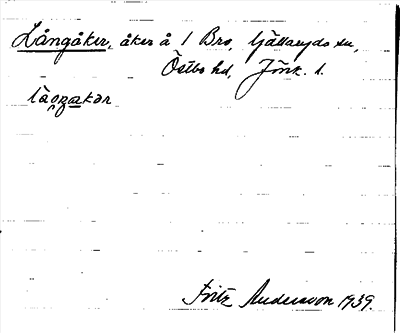 Långåker, åker å 1 Bro, Gällaryds sn,
Östbo hd, Jönk. l.
Fritz Andersson 1939.